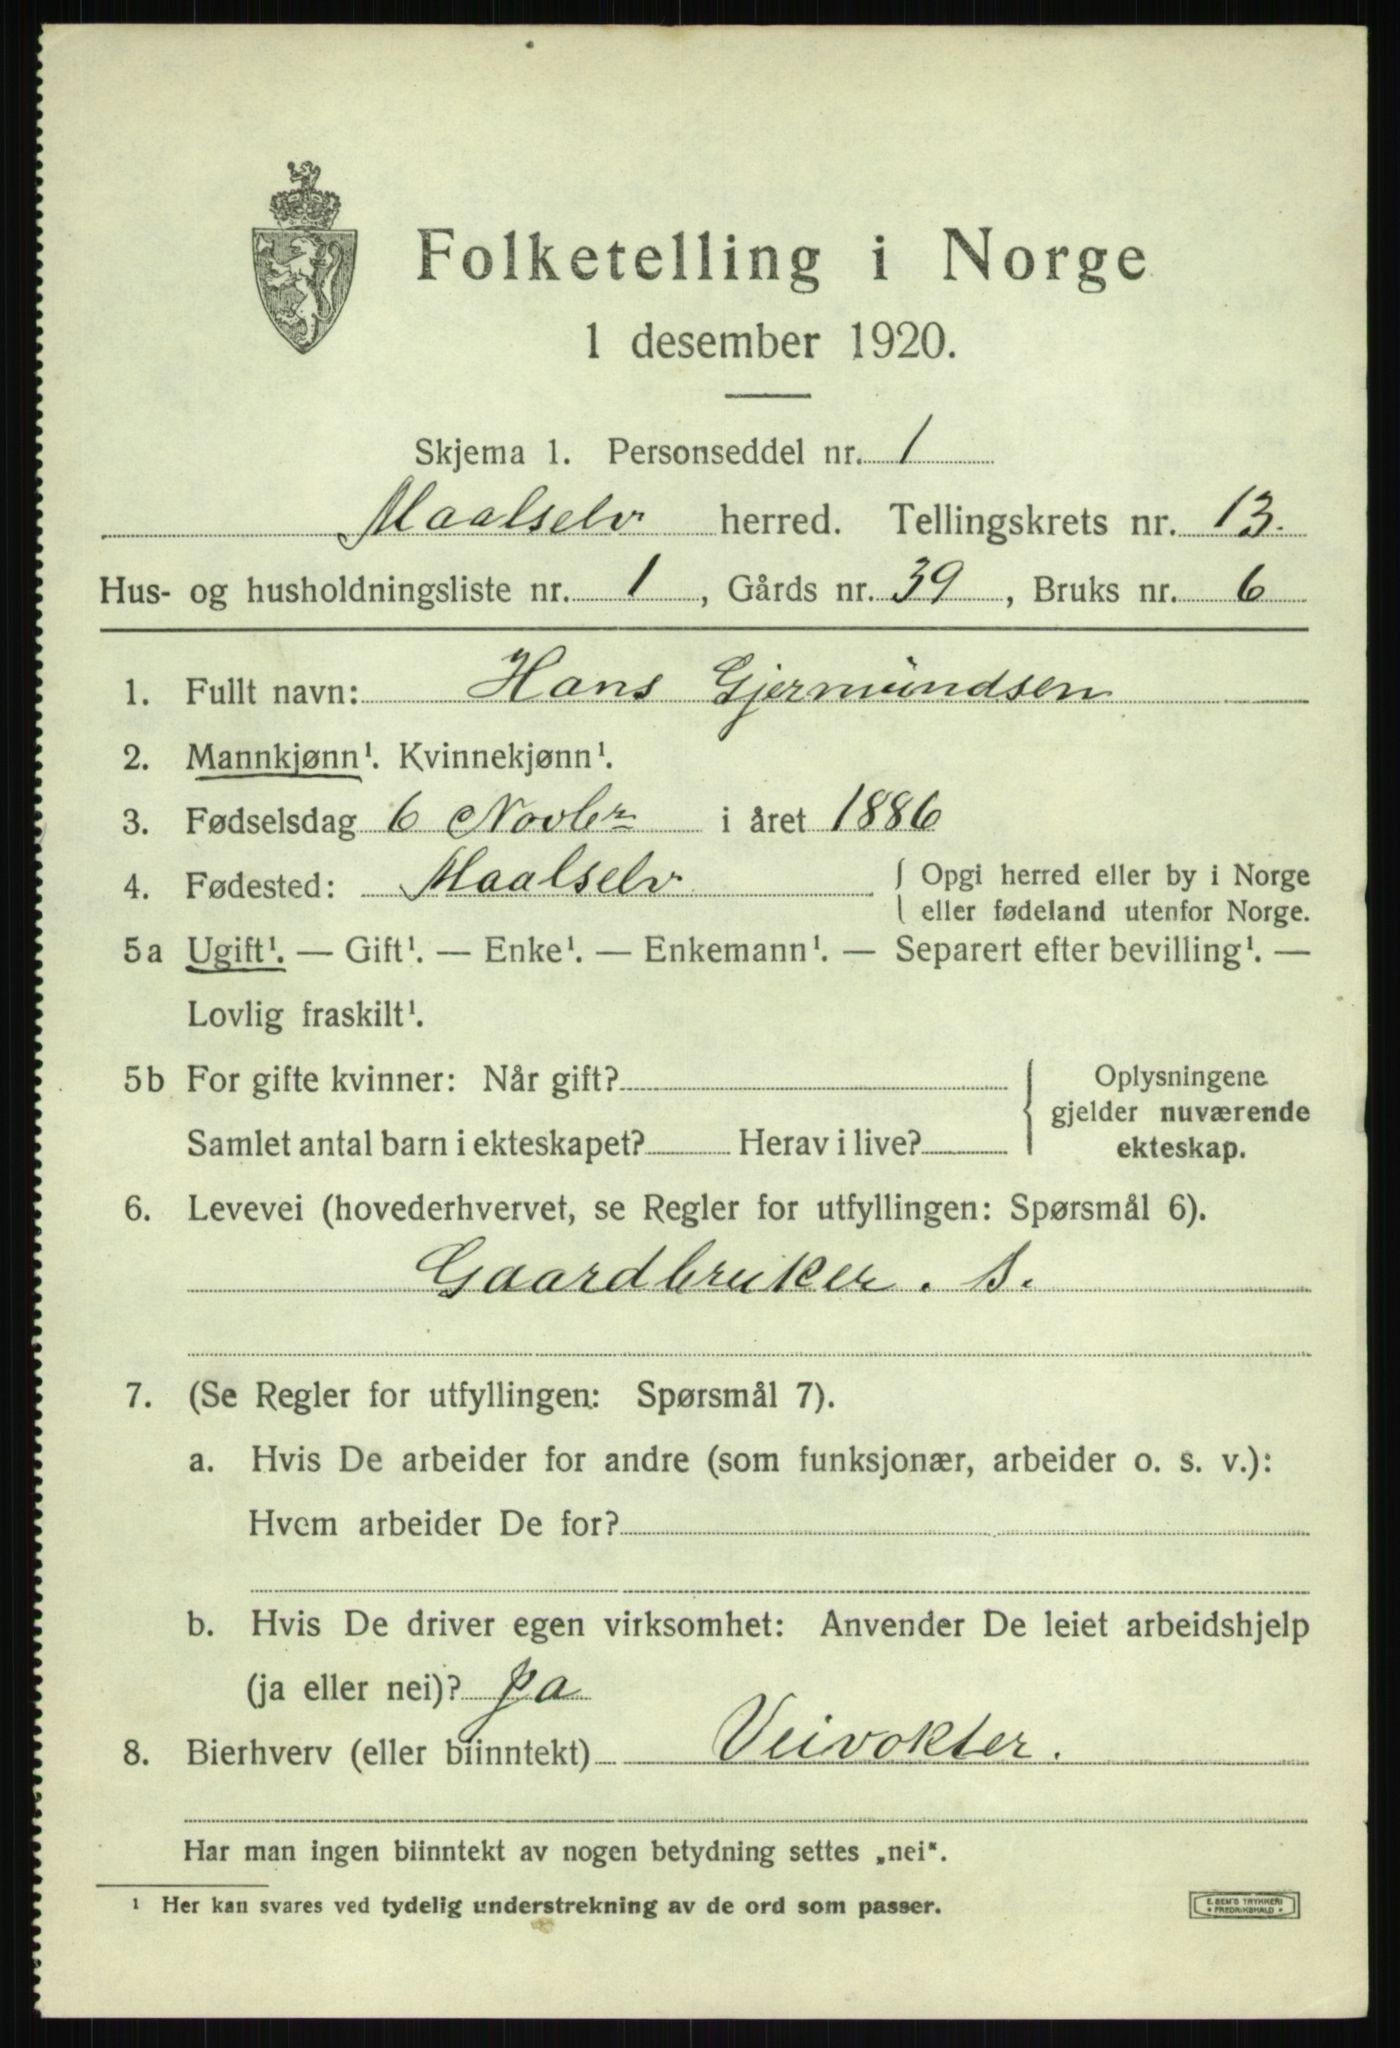 Folketelling i Norge
1 desember 1920.
Skjema 1. Personseddel nr. 1
Maalselv herred. Tellingskrets nr. 13.
Hus- og husholdningsliste nr. 1, Gårds nr. 39, Bruks nr. 6
1. Fullt navn: Hans Gjermundsen
2. Mannkjønn¹. Kvinnekjønn¹.
3. Fødselsdag 6 Novbr i året 1886
4. Fødested: Maalselv { Opgi herred eller by i Norge
eller fødeland utenfor Norge.
5a Ugift¹. — Gift¹. — Enke¹. — Enkemann¹. — Separert efter bevilling¹. —
Lovlig fraskilt¹.
5b For gifte kvinner: Når gift? { Oplysningene
gjelder nuværende
Samlet antal barn i ekteskapet? Herav i live? ekteskap.
6. Levevei (hovederhvervet, se Regler for utfyllingen: Spørsmål 6).
Gaardbruker. S.
7. (Se Regler for utfyllingen: Spørsmål 7).
a. Hvis De arbeider for andre (som funksjonær, arbeider o. s. v.):
Hvem arbeider De for?
b. Hvis De driver egen virksomhet: Anvender De leiet arbeidshjelp
(ja eller nei)? ja
8. Bierhverv (eller biinntekt) Veivokter.
Har man ingen biinntekt av nogen betydning settes „nei“.
¹ Her kan svares ved tydelig understrekning av de ord som passer.
E. SEM'S TRYKKERI
FREDRIKSHALD